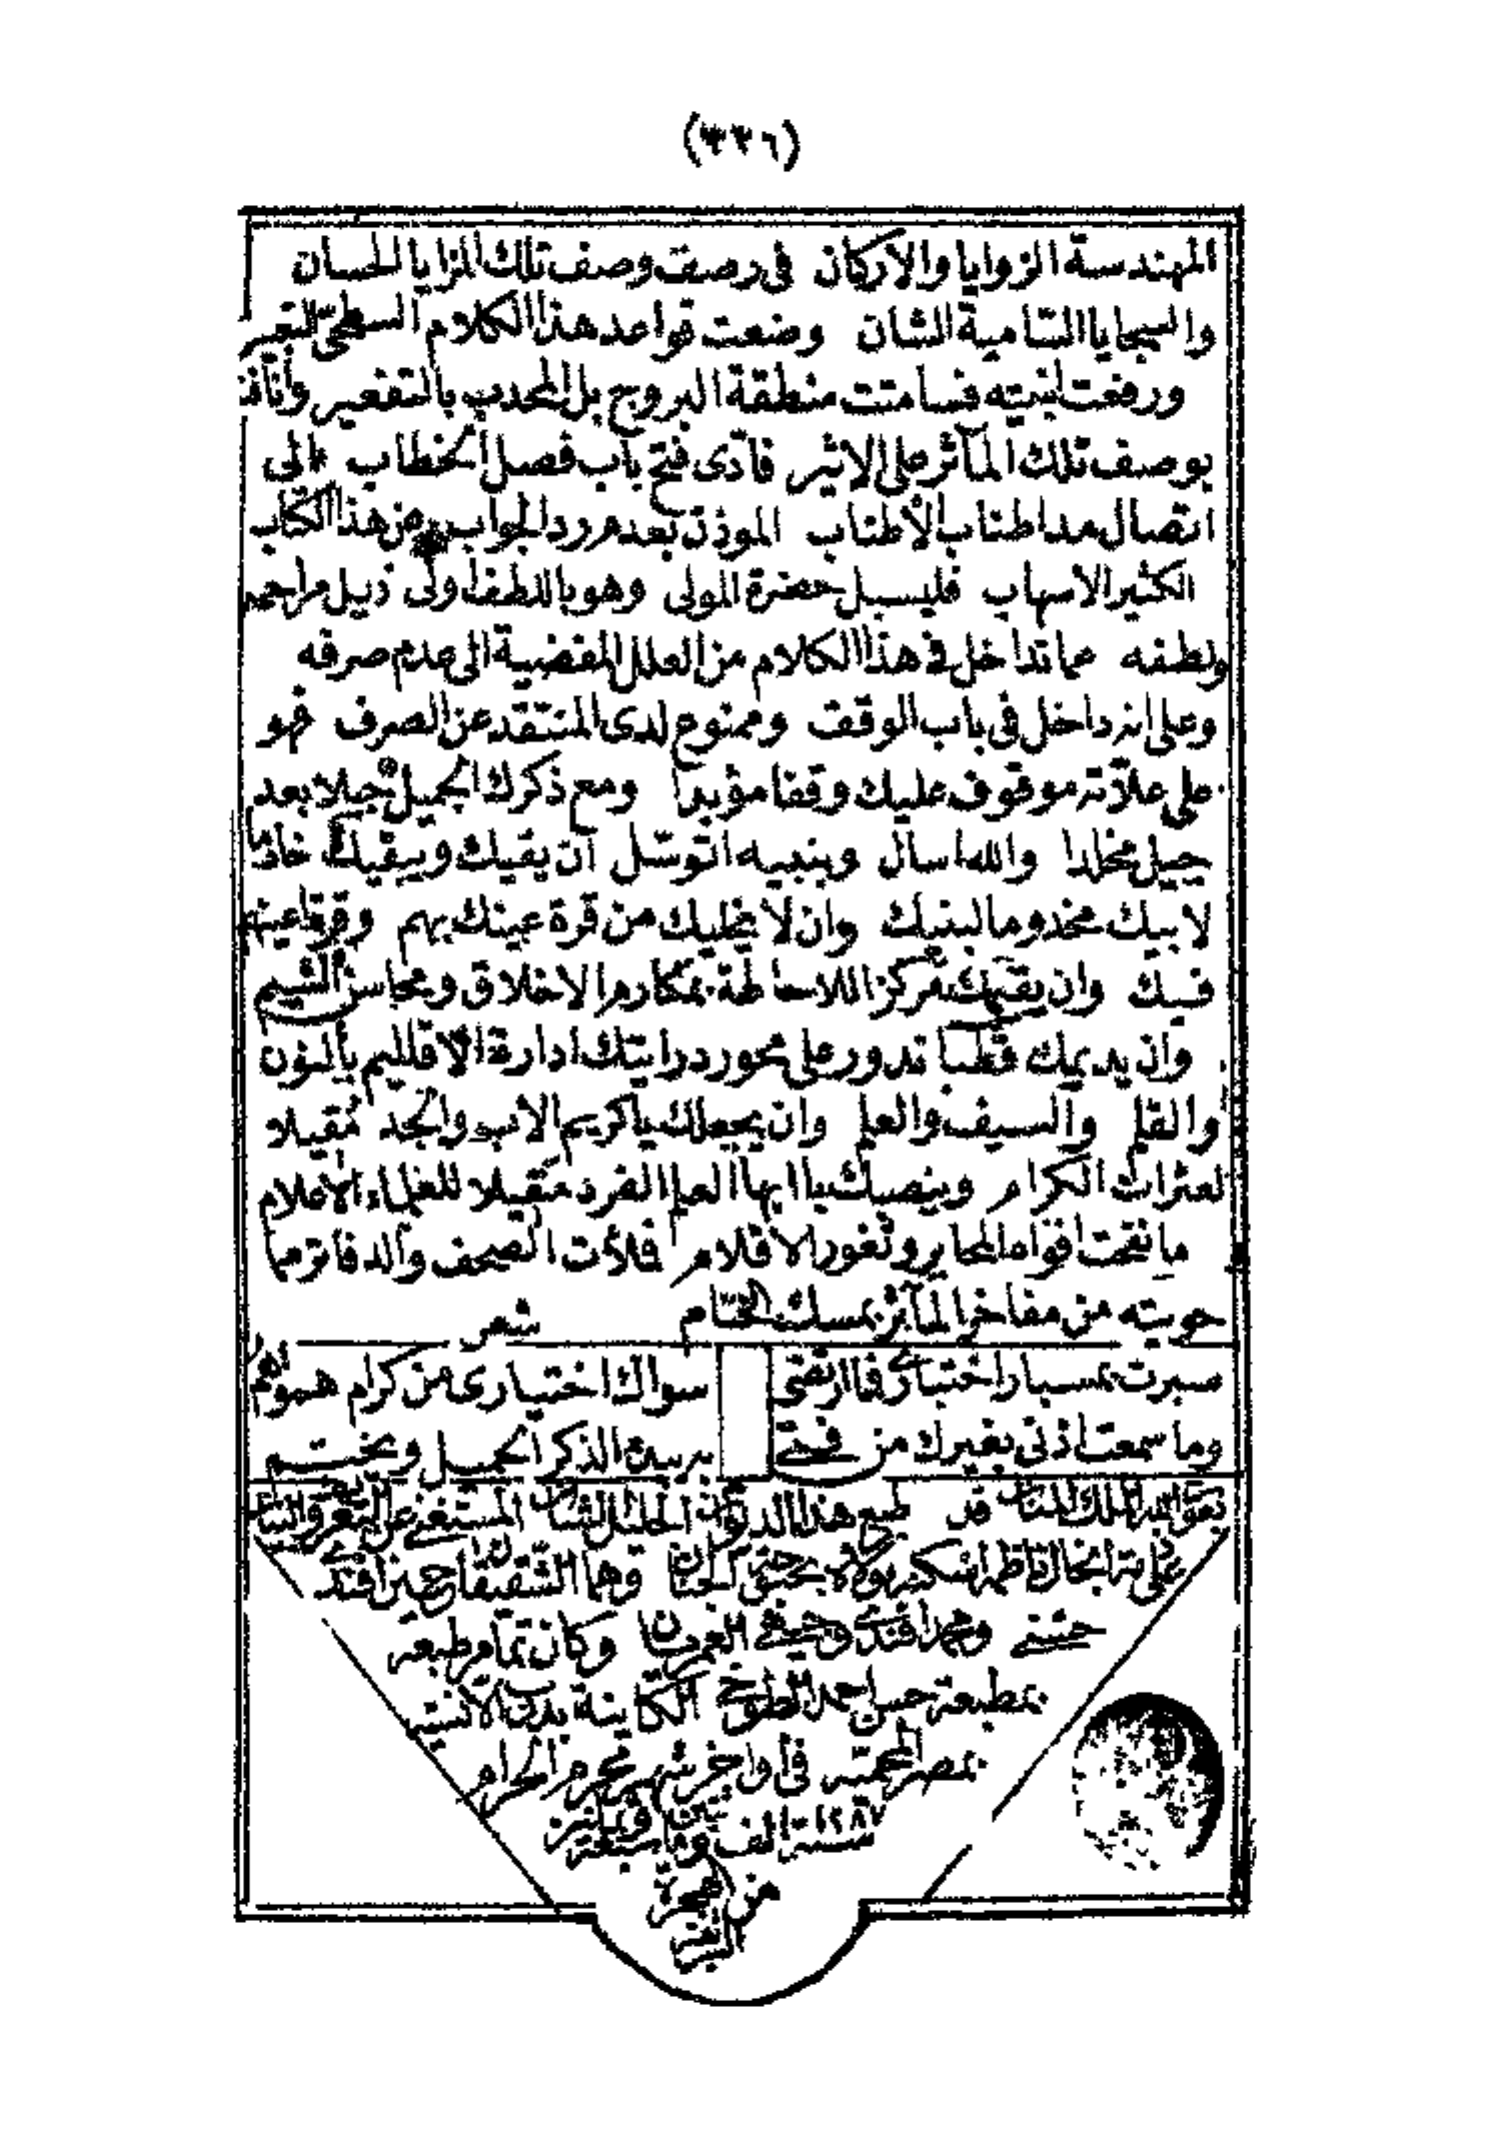 (٣٣٦)
المهندسة الزوايا والاركان فى رصف وصف تلك المزايا الحسان
والسجايا السامية الشان وضعت قواعد هذا الكلام السطحىّ التعبير
ورفعت ابنيته فسامتت منطقة البروج بل المحدب بالتقعير وأنافت
بوصف تلك المآثر على الاثير فأدى فتح باب فصل الخطاب الى
اتصال مد اطناب الأطناب الموذن بعدم رد الجواب عن هذا الكتاب
الكثير الاسهاب فليسبل حضرة المولى وهو باللطف اولى ذيل مراحمه
ولطفه عما تداخل فى هذا الكلام من العلل المفضية الى عدم صرفه
وعلى انه داخل فى باب الوقف وممنوع لدى المنتقد عن الصرف فهو
على علاّته موقوف عليك وقفا مؤبدا ومع ذكرك الجميل جيلا بعد
جيل مخلدا والله اسال وبنبيه اتوسّل ان يقيك ويبقيك خادما
لابيك مخدوما لبنيك وان لا يخليك من قرة عينك بهم وقرة اعينهم
فيك وان يقيمك مركزا للاحاطة بمكارم الاخلاق ومحاسن الشيم
وان يديمك قطبا تدور على محور درايتك ادارة الاقليم بالنون
والقلم والسيف والعلم وان يجعلك يا كريم الاب والجد مقيلا
لعثرات الكرام وينصبك يا ايها العلم الفرد مقيلا للعلماء الاعلام
ما نفحت افواه المحابر وثغور الاقلام فملأت الصحف والدفاتر مما
حويته من مفاخر المآثر بمسك الختام شعر
سبرت بمسبار اختبارى فما ارتضى سواك اختيارى من كرام همو همو
وما سمعت اذنى بغيرك من فتى به يبدء الذكر الجميل ويختم
بعون الملك المنان قد طبع هذا الديوان الجليل الشان المستغنى عن التعريف والتبيان
على ذمة انجال ناظمه اسكنه مولاه بحبوحة الجنان وهما الشقيقان حسين افندى
حسنى ومحمد افندى وحيد العمريان وكان تمام طبعه
بمطبعة حسن احمد الطوخى الكاينة بدرب الانسيه
بمصر المحميّه فى اواخر شهر محرم الحرام
١٢٨٧
سنة الف ومايتين وسبعة وثمانين
من هجرة